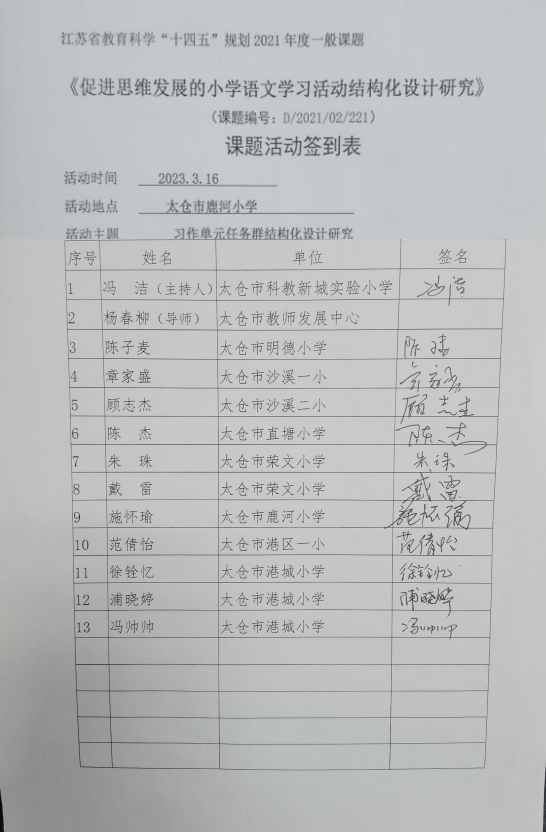 江苏省教育科学“十四五”规划2021年度一般课题
《促进思维发展的小学语文学习活动结构化设计研究》
（课题编号：D/2021/02/221）
课题活动签到表
活动时间 2023.3.16
活动地点 太仓市鹿河小学
活动主题 习作单元任务群结构化设计研究
序号 姓名 单位 签名
1 冯 洁（主持人） 太仓市科教新城实验小学 冯洁
2 杨春柳（导师） 太仓市教师发展中心
3 陈子麦 太仓市明德小学 陈
4 章家盛 太仓市沙溪一小
5 顾志杰 太仓市沙溪二小 顾志杰
6 陈 杰 太仓市直塘小学 陈杰
7 朱 珠 太仓市荣文小学 朱珠
8 戴 雷 太仓市荣文小学 戴雷
9 施怀瑜 太仓市鹿河小学 施怀瑜
10 范倩怡 太仓市港区一小 范倩怡
11 徐铨忆 太仓市港城小学 徐铨忆
12 浦晓婷 太仓市港城小学 浦晓婷
13 冯帅帅 太仓市港城小学 冯帅帅